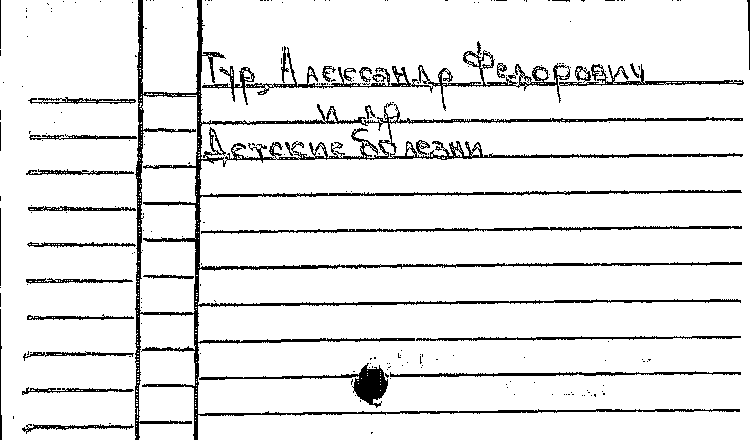 Тур, Александр Федорович
и др.
Детские болезни